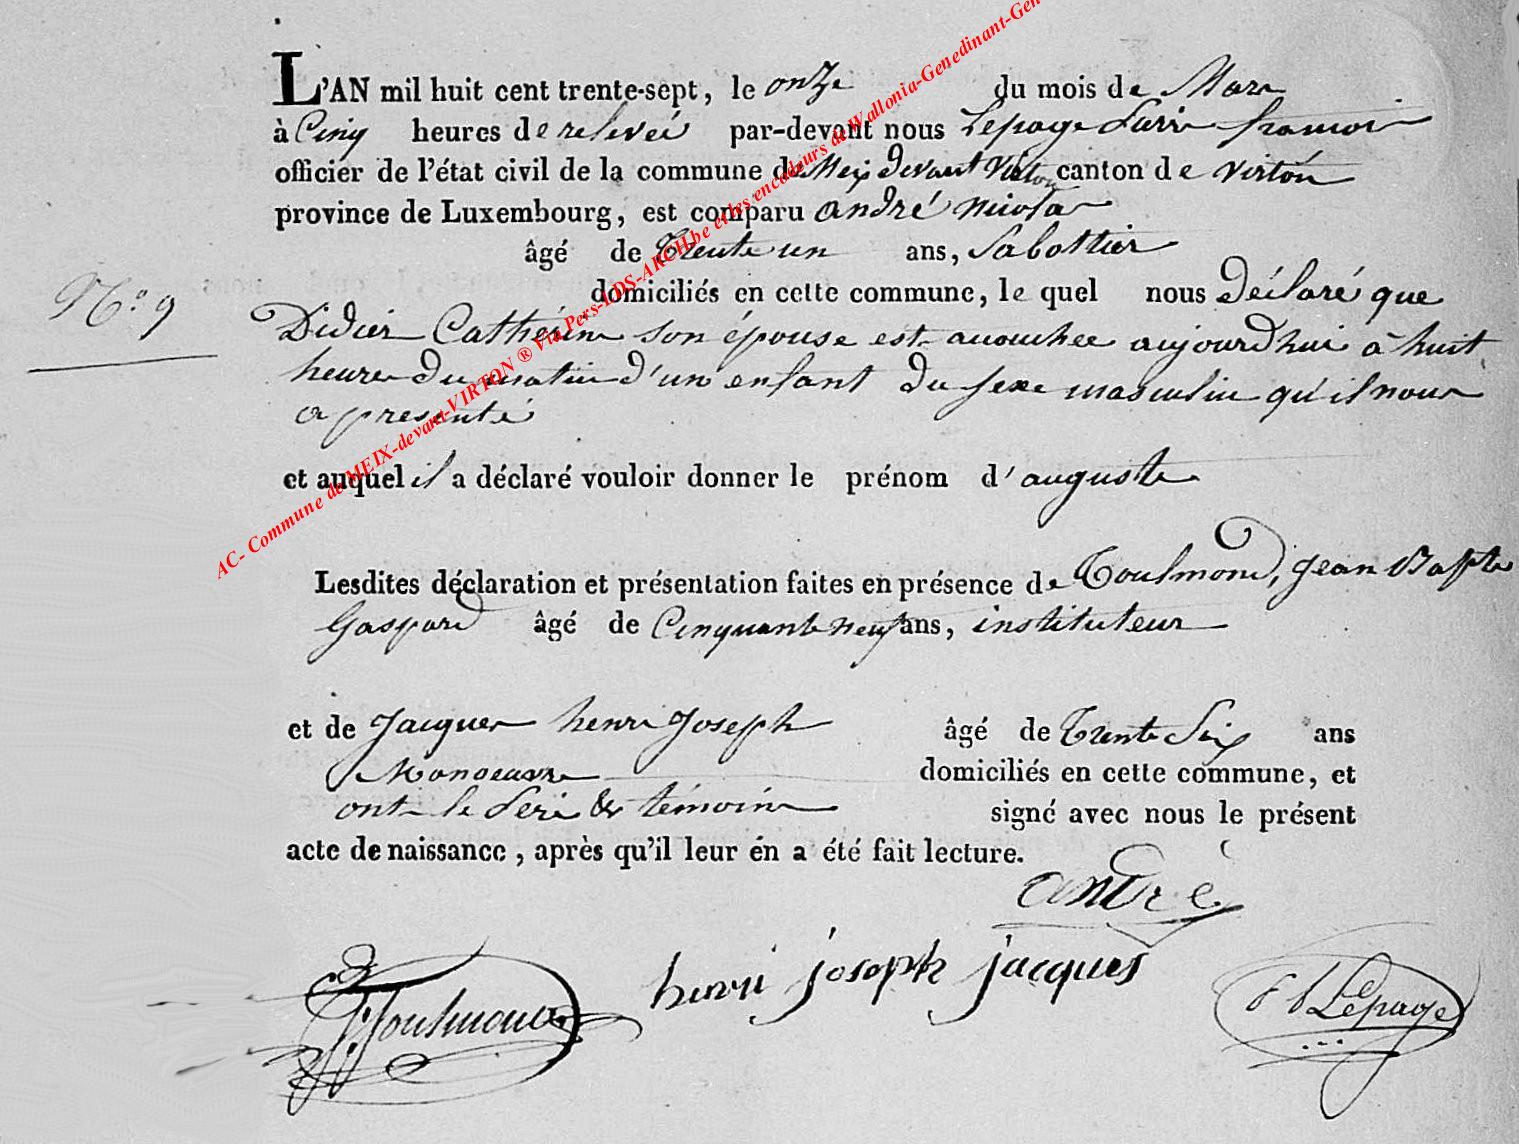 L'AN mil huit cent trente-sept, le onze du mois de Mars
à Cinq heures de relevée par-devant nous Lepage françois
officier de l'état civil de la commune de Meix devant Virton canton de virton
province de Luxembourg, est comparu andré nicolas
âgé de Trente un ans, Sabottier
N.o 9
domiciliés en cette commune, le quel nous déclaré que
Didier Catherine son épouse est accouchee aujourd'hui à huit
heures du matin d'un enfant du sexe masculin qu'il nous
a presenté
et auquel il a déclaré vouloir donner le prénom d'auguste
Lesdites déclaration et présentation faites en présence de Toulmond, jean Bapte
Gaspard âgé de Cinquante neuf ans, instituteur
et de Jacques henri Joseph âgé de Trente Six ans
Manoeuvre domiciliés en cette commune, et
ont le Père & témoins signé avec nous le présent
acte de naissance, après qu'il leur en a été fait lecture.
andré
Toulmond henri joseph jacques Lepage
AC- Commune de MEIX-devant-VIRTON ® Via Pers-LDS-ARCH.be et les encodeurs de Wallonia-Genedinant-Gen